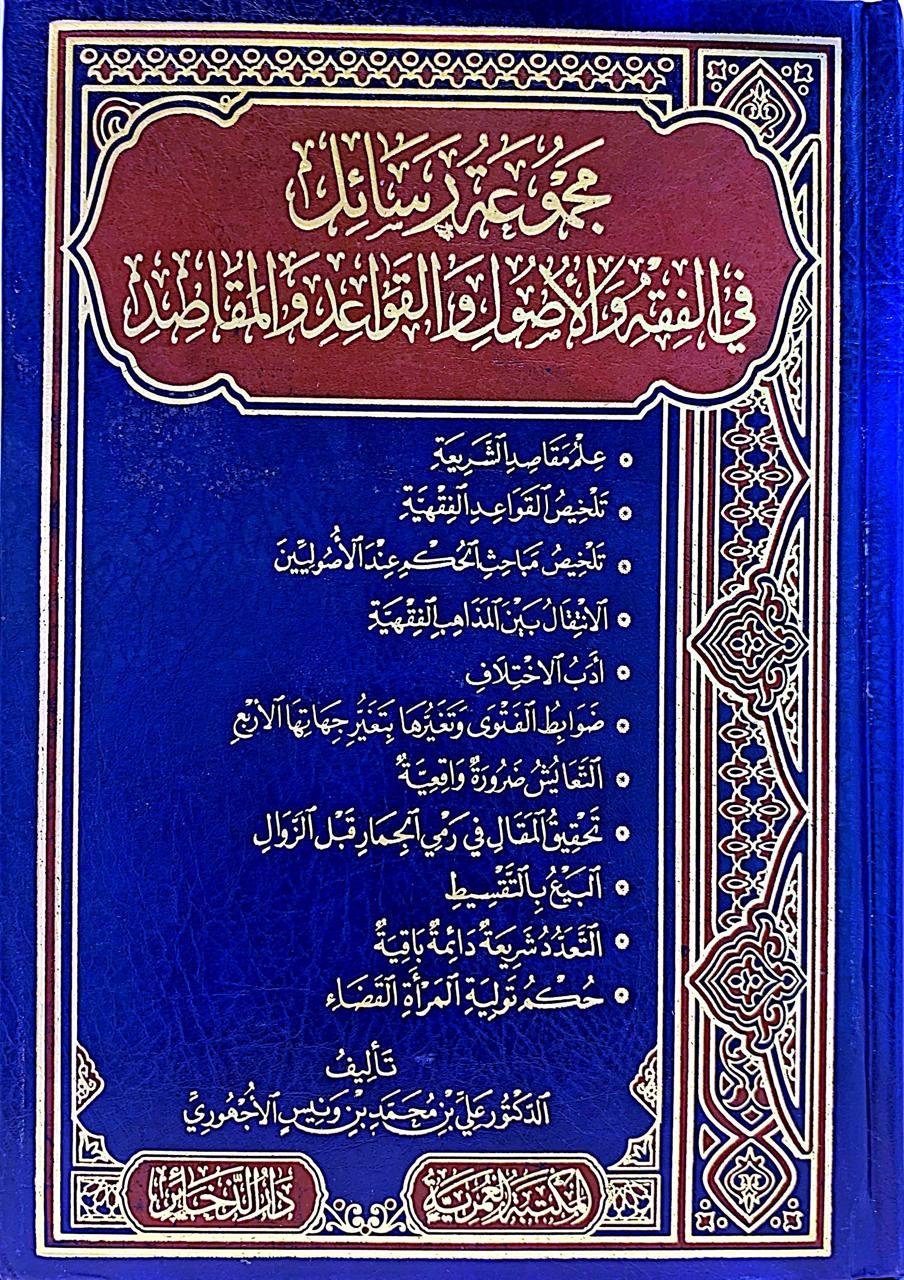 مَجْمُوعَةُ رَسَائِلَ
فِي الْفِقْهِ وَالْأُصُولِ وَالْقَوَاعِدِ وَالْمَقَاصِدِ
عِلْمُ مَقَاصِدِ الشَّرِيعَةِ
تَلْخِيصُ الْقَوَاعِدِ الْفِقْهِيَّةِ
تَلْخِيصُ مَبَاحِثِ الْحُكْمِ عِنْدَ الْأُصُولِيِّينَ
الِانْتِقَالُ بَيْنَ الْمَذَاهِبِ الْفِقْهِيَّةِ
أَدَبُ الِاخْتِلَافِ
ضَوَابِطُ الْفَتْوَى وَتَغَيُّرُهَا بِتَغَيُّرِ جِهَاتِهَا الْأَرْبَعِ
التَّعَايُشُ ضَرُورَةٌ وَاقِعِيَّةٌ
تَحْقِيقُ الْمَقَالِ فِي رَمْيِ الْجِمَارِ قَبْلَ الزَّوَالِ
الْبَيْعُ بِالتَّقْسِيطِ
التَّعَدُّدُ شَرِيعَةٌ دَائِمَةٌ بَاقِيَةٌ
حُكْمُ تَوْلِيَةِ الْمَرْأَةِ الْقَضَاءَ
تَأْلِيفُ
الدُّكْتُورِ عَلِيِّ بْنِ مُحَمَّدِ بْنِ وَنِيسٍ الْأُجْهُورِيِّ
المَكْتَبَةُ العُمَرِيَّةُ
دَارُ الذَّخَائِرِ